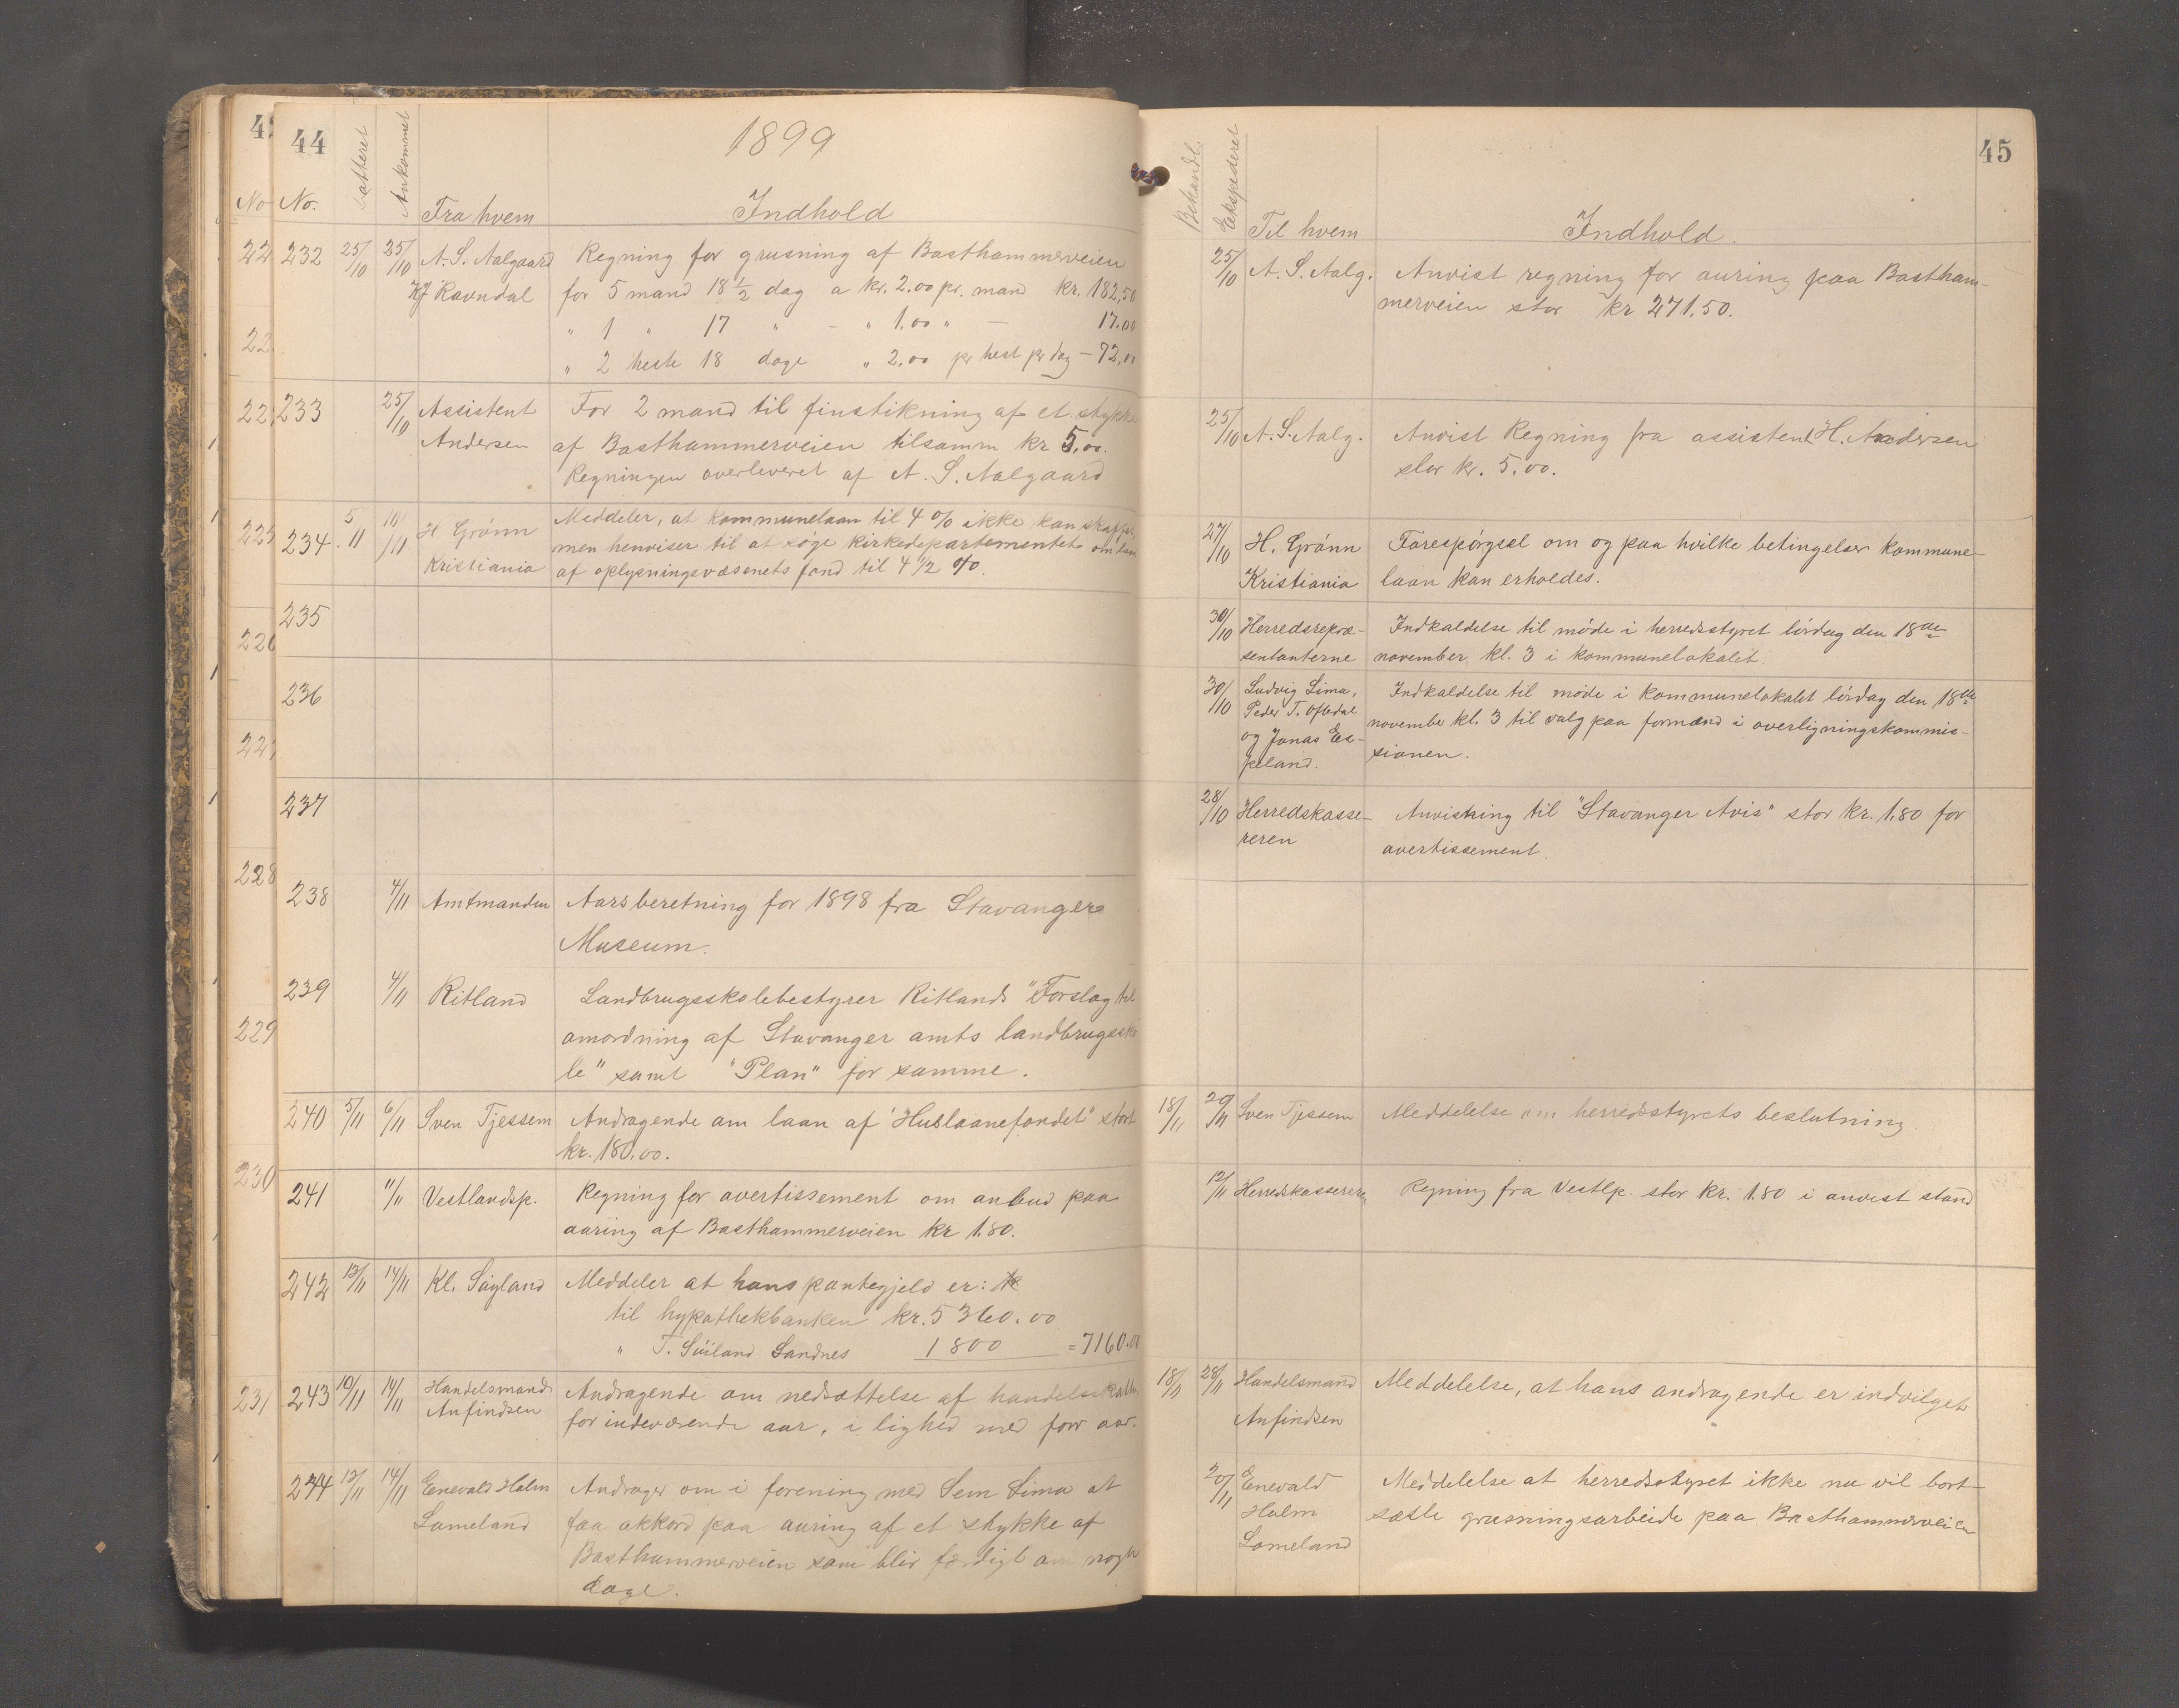 44
1899
No. Datteret Ankommet Fra hvem Indhold
232 25/10 25/10 A. S. Aalgaard Regning for grusning af Basthammerveien
KJ Ravndal for 5 mand 18 1/2 dag a kr. 2.00 pr. mand kr. 182,50
" 1 " 17 " - " 1.00 " — 17.00
" 2 heste 18 dage " 2.00 pr hest pr dag — 72,00
233 25/10 Assistent For 2 mand til finstikning af et stykke
Andersen af Basthammerveien tilsamm kr 5,00.
Regningen overleveret af A. S. Aalgaard
234. 5/11 10/11 H Grónn Meddeler, at kommunelaan til 4 % ikke kan skaffes,
men henviser til at søge kirkedepartementet om laan
Kristiania af oplysningsvæsenets fond til 4 1/2 %.
235
236
237
238 4/11 Amtmanden Aarsberetning for 1898 fra Stavanger
Museum.
239 4/11 Ritland Landbrugsskolebestyrer Ritlands "Forslag til
omordning af Stavanger amts landbrugssko
le" samt "Plan" for samme.
240 5/11 6/11 Sven Tjessem Andragende om laan af "Huslaanefondet" stort
kr. 180.00.
241 11/11 Vestlandsp. Regning for avertissement om anbud paa
auring af Basthammerveien kr 1.80.
242 13/11 14/11 Kl. Søyland Meddeler at hans pantegjeld er:
til hypothekbanken kr. 5360.00
" T. Süiland Sandnes 1800 = 7160.00
243 10/11 14/11 Handelsmand Andragende om nedsættelse af handelsskatten
Anfindsen for indeværende aar, i lighed med forr aar.
244 13/11 14/11 Enevald Holm Andrager om i forening med Sem Lima at
Lomeland faa akkord paa auring af et stykke af
Basthammerveien som blir færdigt om nogle
dage.
45
Behandl. Ekspederet Til hvem Indhold.
25/10 A. S. Aalg. Anvist regning for auring paa Bastham-
merveien stor kr 271.50.
25/10 A. S. Aalg. Anvist Regning fra assistent H. Andersen
stor kr. 5.00.
27/10 H. Grónn Forespørgsel om og paa hvilke betingelser kommune-
Kristiania laan kan erholdes.
30/10 Herredsrepræ- Indkaldelse til møde i herredsstyret lørdag den 18de
sentanterne november kl. 3 i kommunelokalet.
30/10 Ludvig Lima, Indkaldelse til møde i kommunelokalet lørdag den 18de
Peder T. Oftedal november kl. 3 til valg paa formænd i overligningskommis-
og Jonas Es- sionen.
peland.
28/10 Herredskasse- Anvisning til "Stavanger Avis" stor kr. 1.80 for
reren avertissement.
18/11 20/11 Sven Tjessem Meddelelse om herredsstyrets beslutning
12/11 Herredskassereren Regning fra Vestlp. stor kr. 1.80 i anvist stand
18/11 28/11 Handelsmand Meddelelse, at hans andragende er indvilget
Anfindsen
20/11 Enevald Meddelelse at herredsstyret ikke nu vil bort-
Holm sætte grusningsarbeide paa Basthammerveien
Lomeland
No
229
230
231